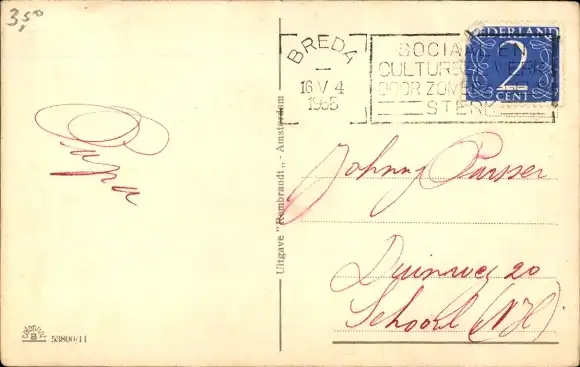 3,50
BREDA
16 V 4
1955
SOCIAAL EN
CULTUREEL WERK
DOOR ZOMERZEGELS
STERK
NEDERLAND
2
CENT
Papa
Uitgave "Rembrandt" - Amsterdam
Johnny Passer
Duinweg 20
Schoorl (NH)
53800/11